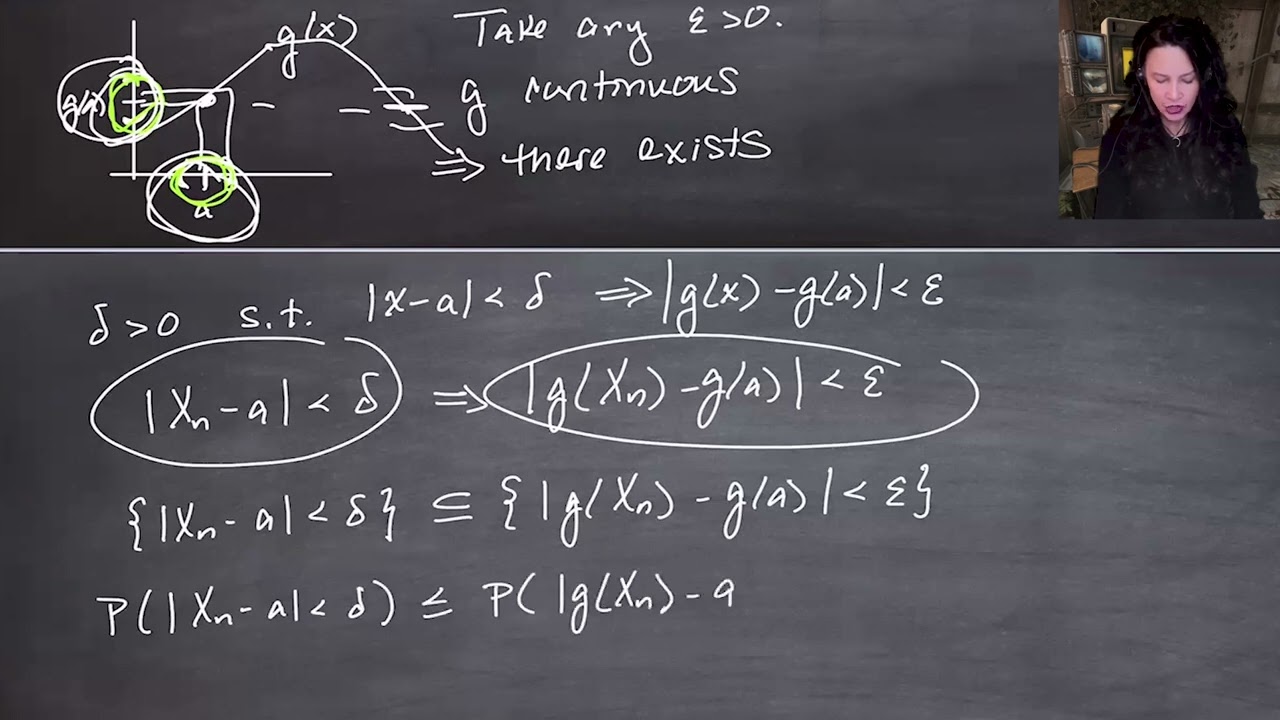 g(x)
g(a)
a
Take any ε>0.
g continuous
⇒ there exists
δ>0 s.t. |x-a|<δ ⇒ |g(x)-g(a)|<ε
|Xₙ-a|<δ ⇒ |g(Xₙ)-g(a)|<ε
{|Xₙ-a|<δ} ⊆ {|g(Xₙ)-g(a)|<ε}
P(|Xₙ-a|<δ) ≤ P(|g(Xₙ)-g